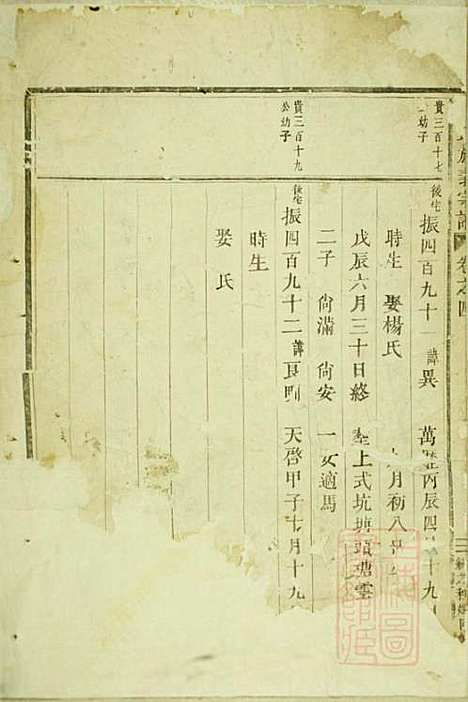 卷之四
貴三百十七
幼子
後宅
振四百九十一 諱異 萬歷丙辰四月十九
時生 娶楊氏 月初八
戊辰六月三十日終 塟上式坑塘頭塘
二子 尙滿 尙安 一女適馬
貴三百十九
公幼子
後宅
振四百九十二 諱良 天啓甲子七月十九
時生
娶氏